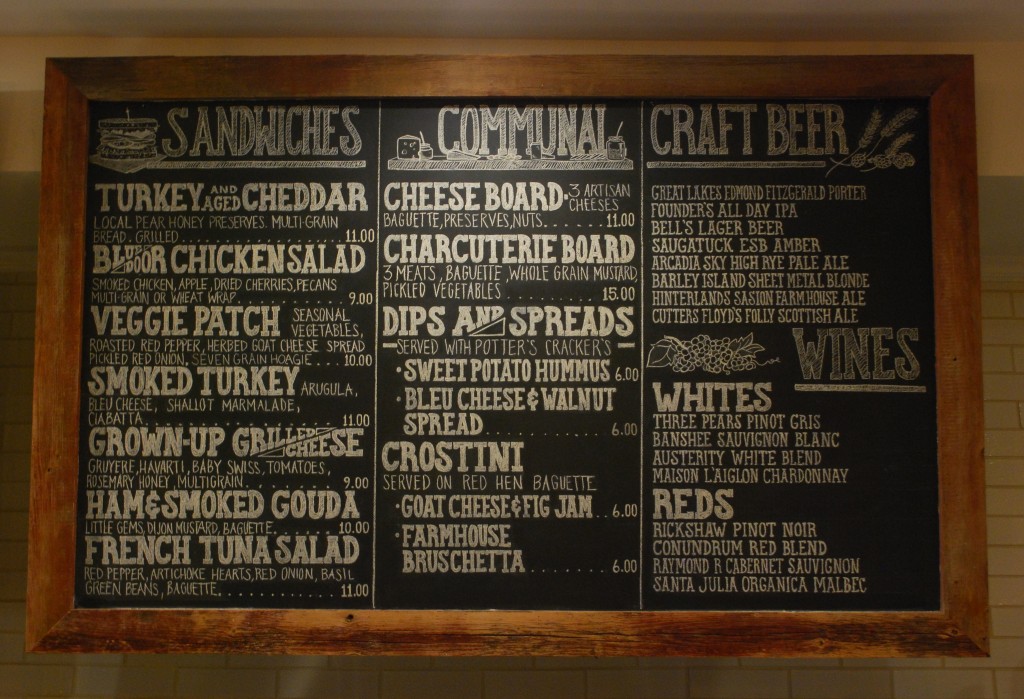 SANDWICHES
TURKEY AND AGED CHEDDAR
LOCAL PEAR HONEY PRESERVES. MULTI-GRAIN
BREAD. GRILLED 11.00
BLUE DOOR CHICKEN SALAD
SMOKED CHICKEN, APPLE, DRIED CHERRIES, PECANS
MULTI-GRAIN OR WHEAT WRAP 9.00
VEGGIE PATCH SEASONAL VEGETABLES,
ROASTED RED PEPPER, HERBED GOAT CHEESE SPREAD
PICKLED RED ONION, SEVEN GRAIN HOAGIE 10.00
SMOKED TURKEY ARUGULA,
BLEU CHEESE, SHALLOT MARMALADE,
CIABATTA 11.00
GROWN-UP GRILLED CHEESE
GRUYERE, HAVARTI, BABY SWISS, TOMATOES,
ROSEMARY HONEY, MULTIGRAIN 9.00
HAM & SMOKED GOUDA
LITTLE GEMS, DIJON MUSTARD, BAGUETTE 10.00
FRENCH TUNA SALAD
RED PEPPER, ARTICHOKE HEARTS, RED ONION, BASIL
GREEN BEANS, BAGUETTE 11.00
COMMUNAL
CHEESE BOARD - 3 ARTISAN CHEESES
BAGUETTE, PRESERVES, NUTS 11.00
CHARCUTERIE BOARD
3 MEATS, BAGUETTE, WHOLE GRAIN MUSTARD,
PICKLED VEGETABLES 15.00
DIPS AND SPREADS
SERVED WITH POTTER'S CRACKER'S
• SWEET POTATO HUMMUS 6.00
• BLEU CHEESE & WALNUT
SPREAD 6.00
CROSTINI
SERVED ON RED HEN BAGUETTE
• GOAT CHEESE & FIG JAM 6.00
• FARMHOUSE
BRUSCHETTA 6.00
CRAFT BEER
GREAT LAKES EDMOND FITZGERALD PORTER
FOUNDER'S ALL DAY IPA
BELL'S LAGER BEER
SAUGATUCK ESB AMBER
ARCADIA SKY HIGH RYE PALE ALE
BARLEY ISLAND SHEET METAL BLONDE
HINTERLANDS SASION FARMHOUSE ALE
CUTTERS FLOYD'S FOLLY SCOTTISH ALE
WINES
WHITES
THREE PEARS PINOT GRIS
BANSHEE SAUVIGNON BLANC
AUSTERITY WHITE BLEND
MAISON LAIGLON CHARDONNAY
REDS
RICKSHAW PINOT NOIR
CONUNDRUM RED BLEND
RAYMOND R CABERNET SAUVIGNON
SANTA JULIA ORGANICA MALBEC